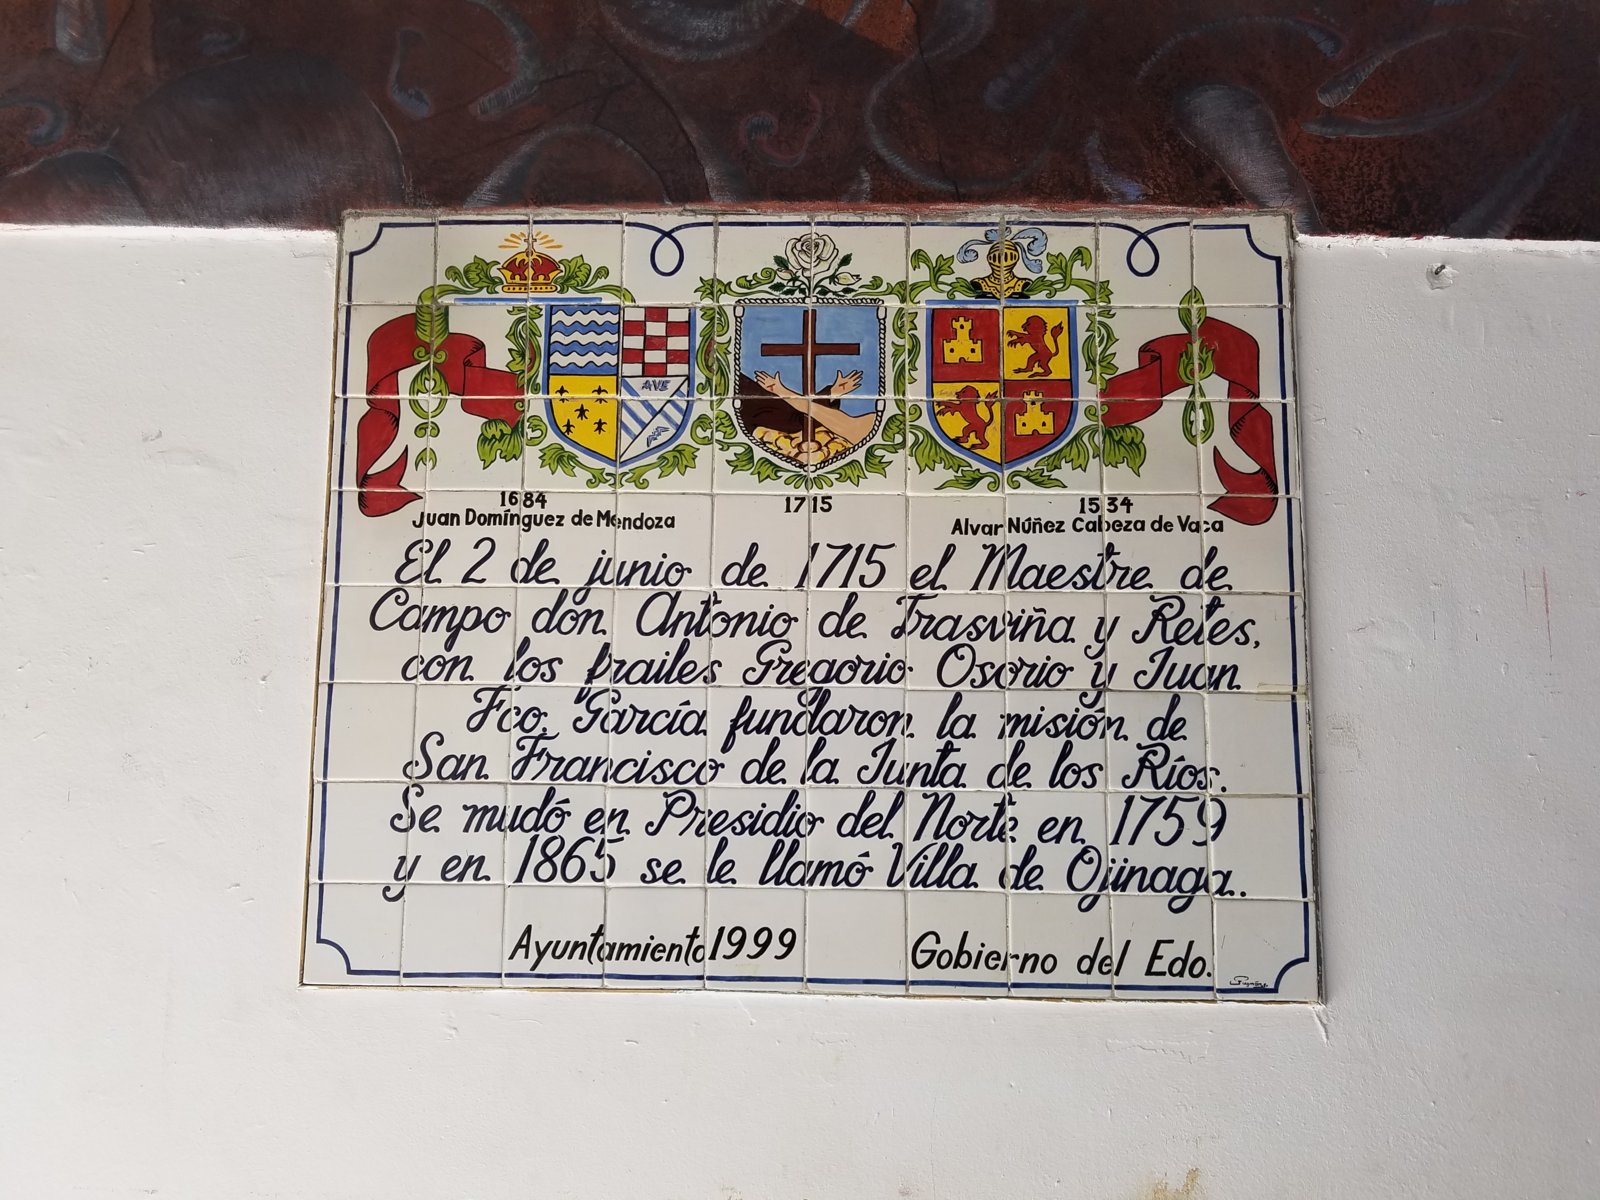 AVE
1684
Juan Domínguez de Mendoza
1715
1534
Alvar Núñez Cabeza de Vaca
El 2 de junio de 1715 el Maestre de
Campo don Antonio de Trasviña y Retes,
con los frailes Gregorio Osorio y Juan
Fco. García fundaron la misión de
San Francisco de la Junta de los Ríos.
Se mudó en Presidio del Norte en 1759
y en 1865 se le llamó Villa de Ojinaga.
Ayuntamiento 1999 Gobierno del Edo.